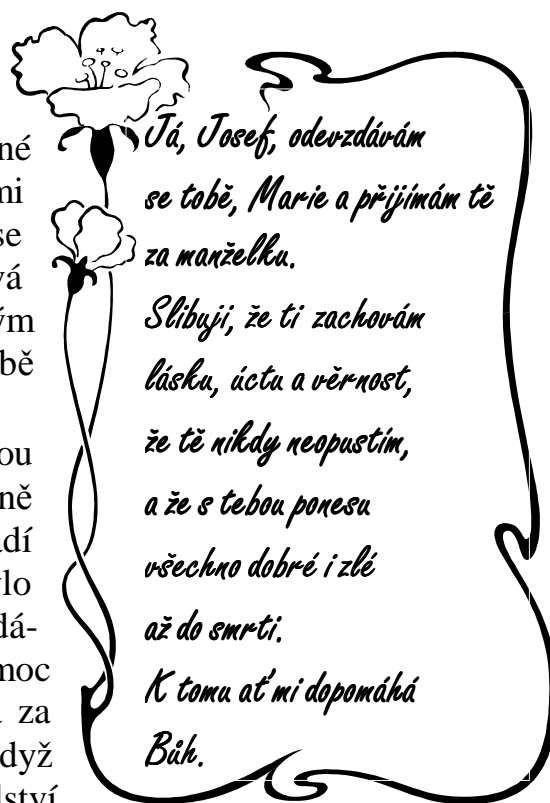 né
mi
se
vá
ým
bě
ou
ně
adí
ylo
dá-
moc
za
dyž
lství
Já, Josef, odevzdávám
se tobě, Marie a přijímám tě
za manželku.
Slibuji, že ti zachovám
lásku, úctu a věrnost,
že tě nikdy neopustím,
a že s tebou ponesu
všechno dobré i zlé
až do smrti.
K tomu ať mi dopomáhá
Bůh.